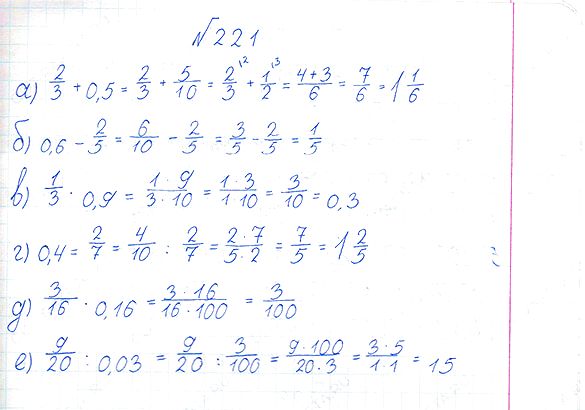 №221
а) 2/3 + 0,5 = 2/3 + 5/10 = 2/3 ^2 + 1/2 ^3 = (4+3)/6 = 7/6 = 1 1/6
б) 0,6 - 2/5 = 6/10 - 2/5 = 3/5 - 2/5 = 1/5
в) 1/3 · 0,9 = (1·9)/(3·10) = (1·3)/(1·10) = 3/10 = 0,3
г) 0,4 = 2/7 = 4/10 : 2/7 = (2·7)/(5·2) = 7/5 = 1 2/5
д) 3/16 · 0,16 = (3·16)/(16·100) = 3/100
е) 9/20 : 0,03 = 9/20 : 3/100 = (9·100)/(20·3) = (3·5)/(1·1) = 15